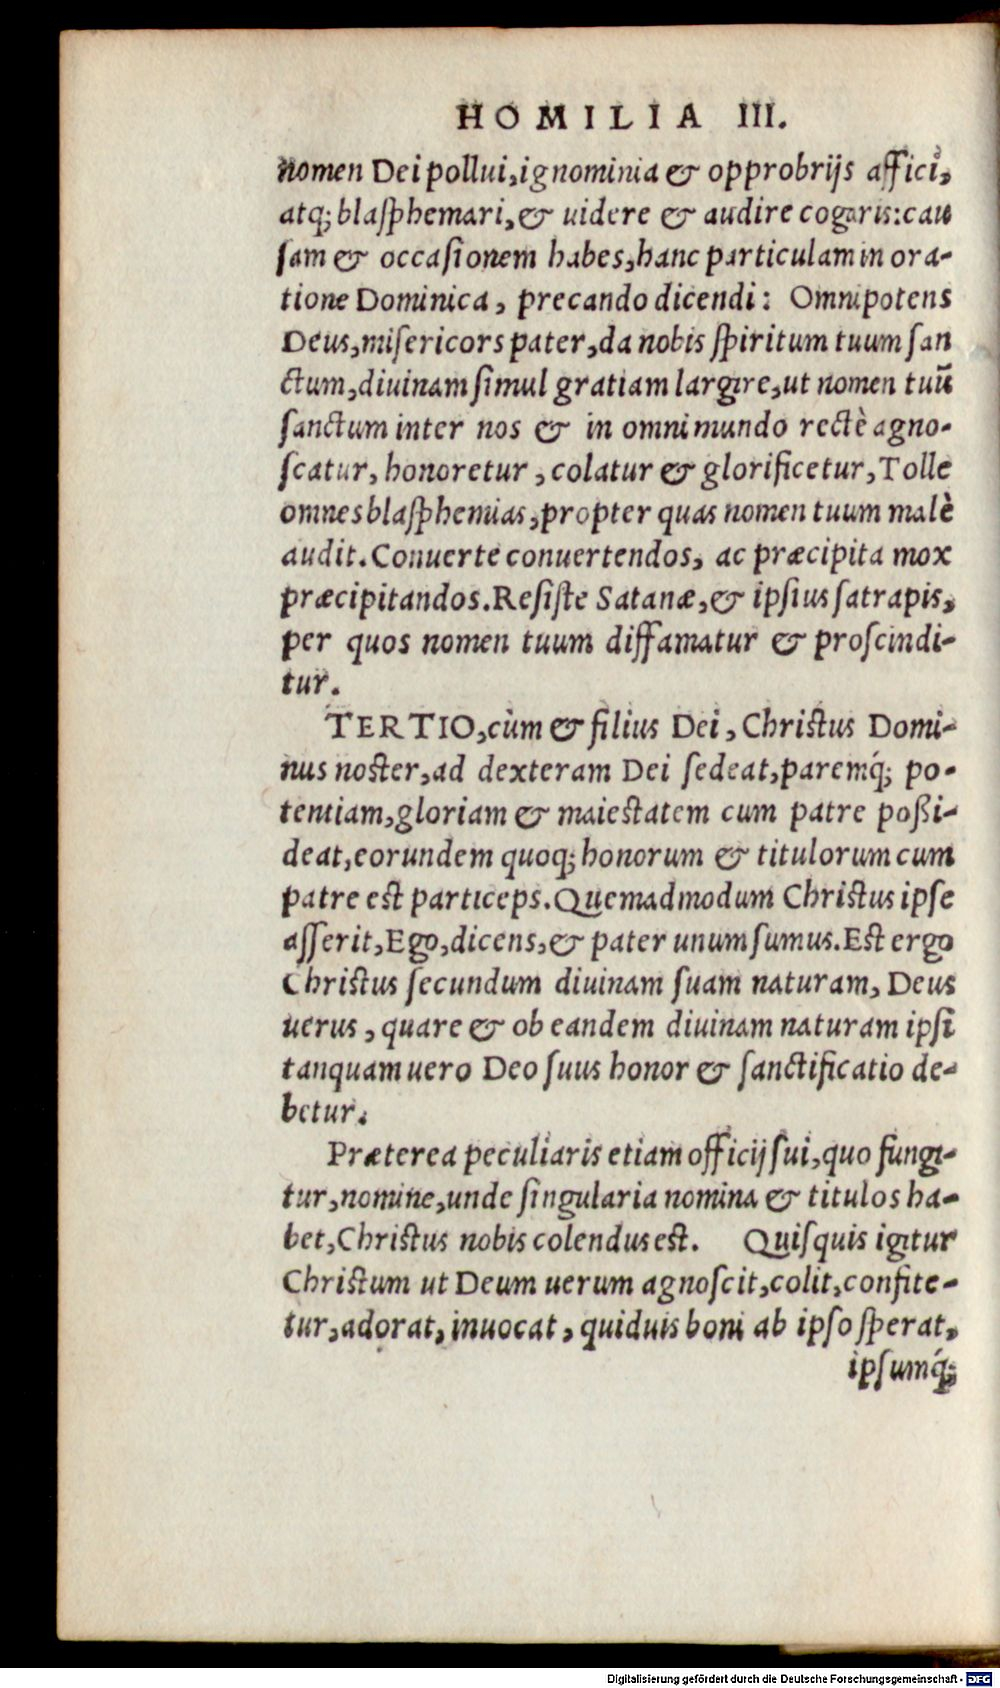 HOMILIA III.
nomen Dei pollui, ignominia & opprobrijs affici,
atq; blasphemari, & uidere & audire cogaris: cau
sam & occasionem habes, hanc particulam in ora-
tione Dominica, precando dicendi: Omnipotens
Deus, misericors pater, da nobis spiritum tuum san
ctum, diuinam simul gratiam largire, ut nomen tuū
sanctum inter nos & in omni mundo rectè agno-
scatur, honoretur, colatur & glorificetur, Tolle
omnes blasphemias, propter quas nomen tuum malè
audit. Conuerte conuertendos, ac præcipita mox
præcipitandos. Resiste Satanæ, & ipsius satrapis,
per quos nomen tuum diffamatur & proscindi-
tur.
TERTIO, cùm & filius Dei, Christus Domi-
nus noster, ad dexteram Dei sedeat, paremq́; po-
tentiam, gloriam & maiestatem cum patre poßi-
deat, eorundem quoq; honorum & titulorum cum
patre est particeps. Quemadmodum Christus ipse
asserit, Ego, dicens, & pater unum sumus. Est ergo
Christus secundum diuinam suam naturam, Deus
uerus, quare & ob eandem diuinam naturam ipsi
tanquam uero Deo suus honor & sanctificatio de-
betur.
Præterea peculiaris etiam officij sui, quo fungi-
tur, nomine, unde singularia nomina & titulos ha-
bet, Christus nobis colendus est. Quisquis igitur
Christum ut Deum uerum agnoscit, colit, confite-
tur, adorat, inuocat, quiduis boni ab ipso sperat,
ipsumq́;
Digitalisierung gefördert durch die Deutsche Forschungsgemeinschaft - DFG